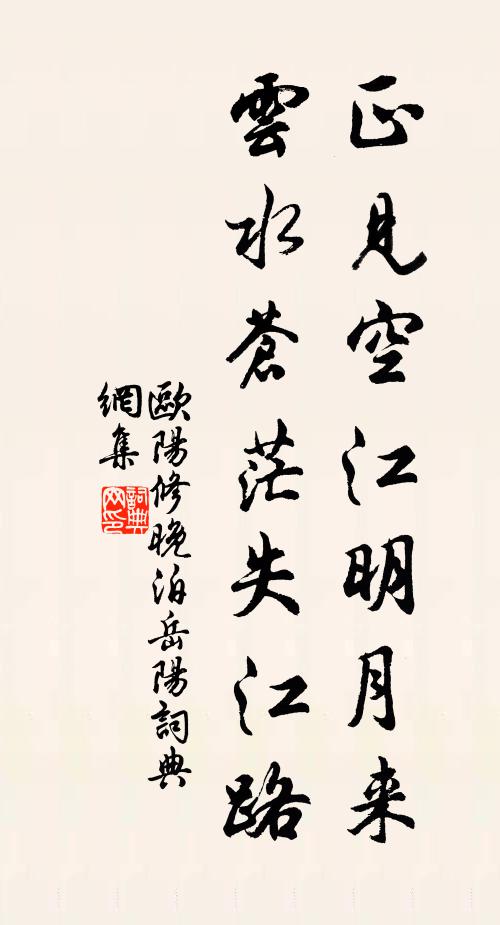 正見空江明月来
雲水蒼茫失江路
歐陽修晚泊岳陽詞典
網集
詞典
网印